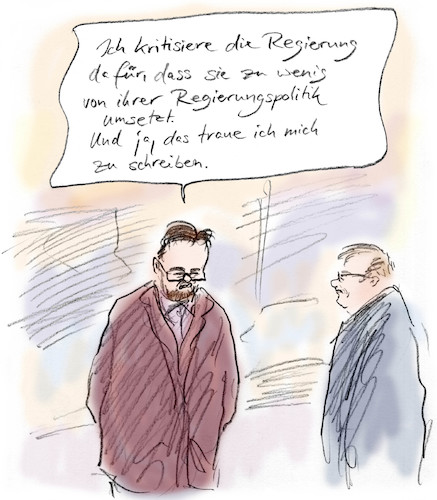 Ich kritisiere die Regierung
dafür, dass sie zu wenig
von ihrer Regierungspolitik
umsetzt.
Und ja, das traue ich mich
zu schreiben.